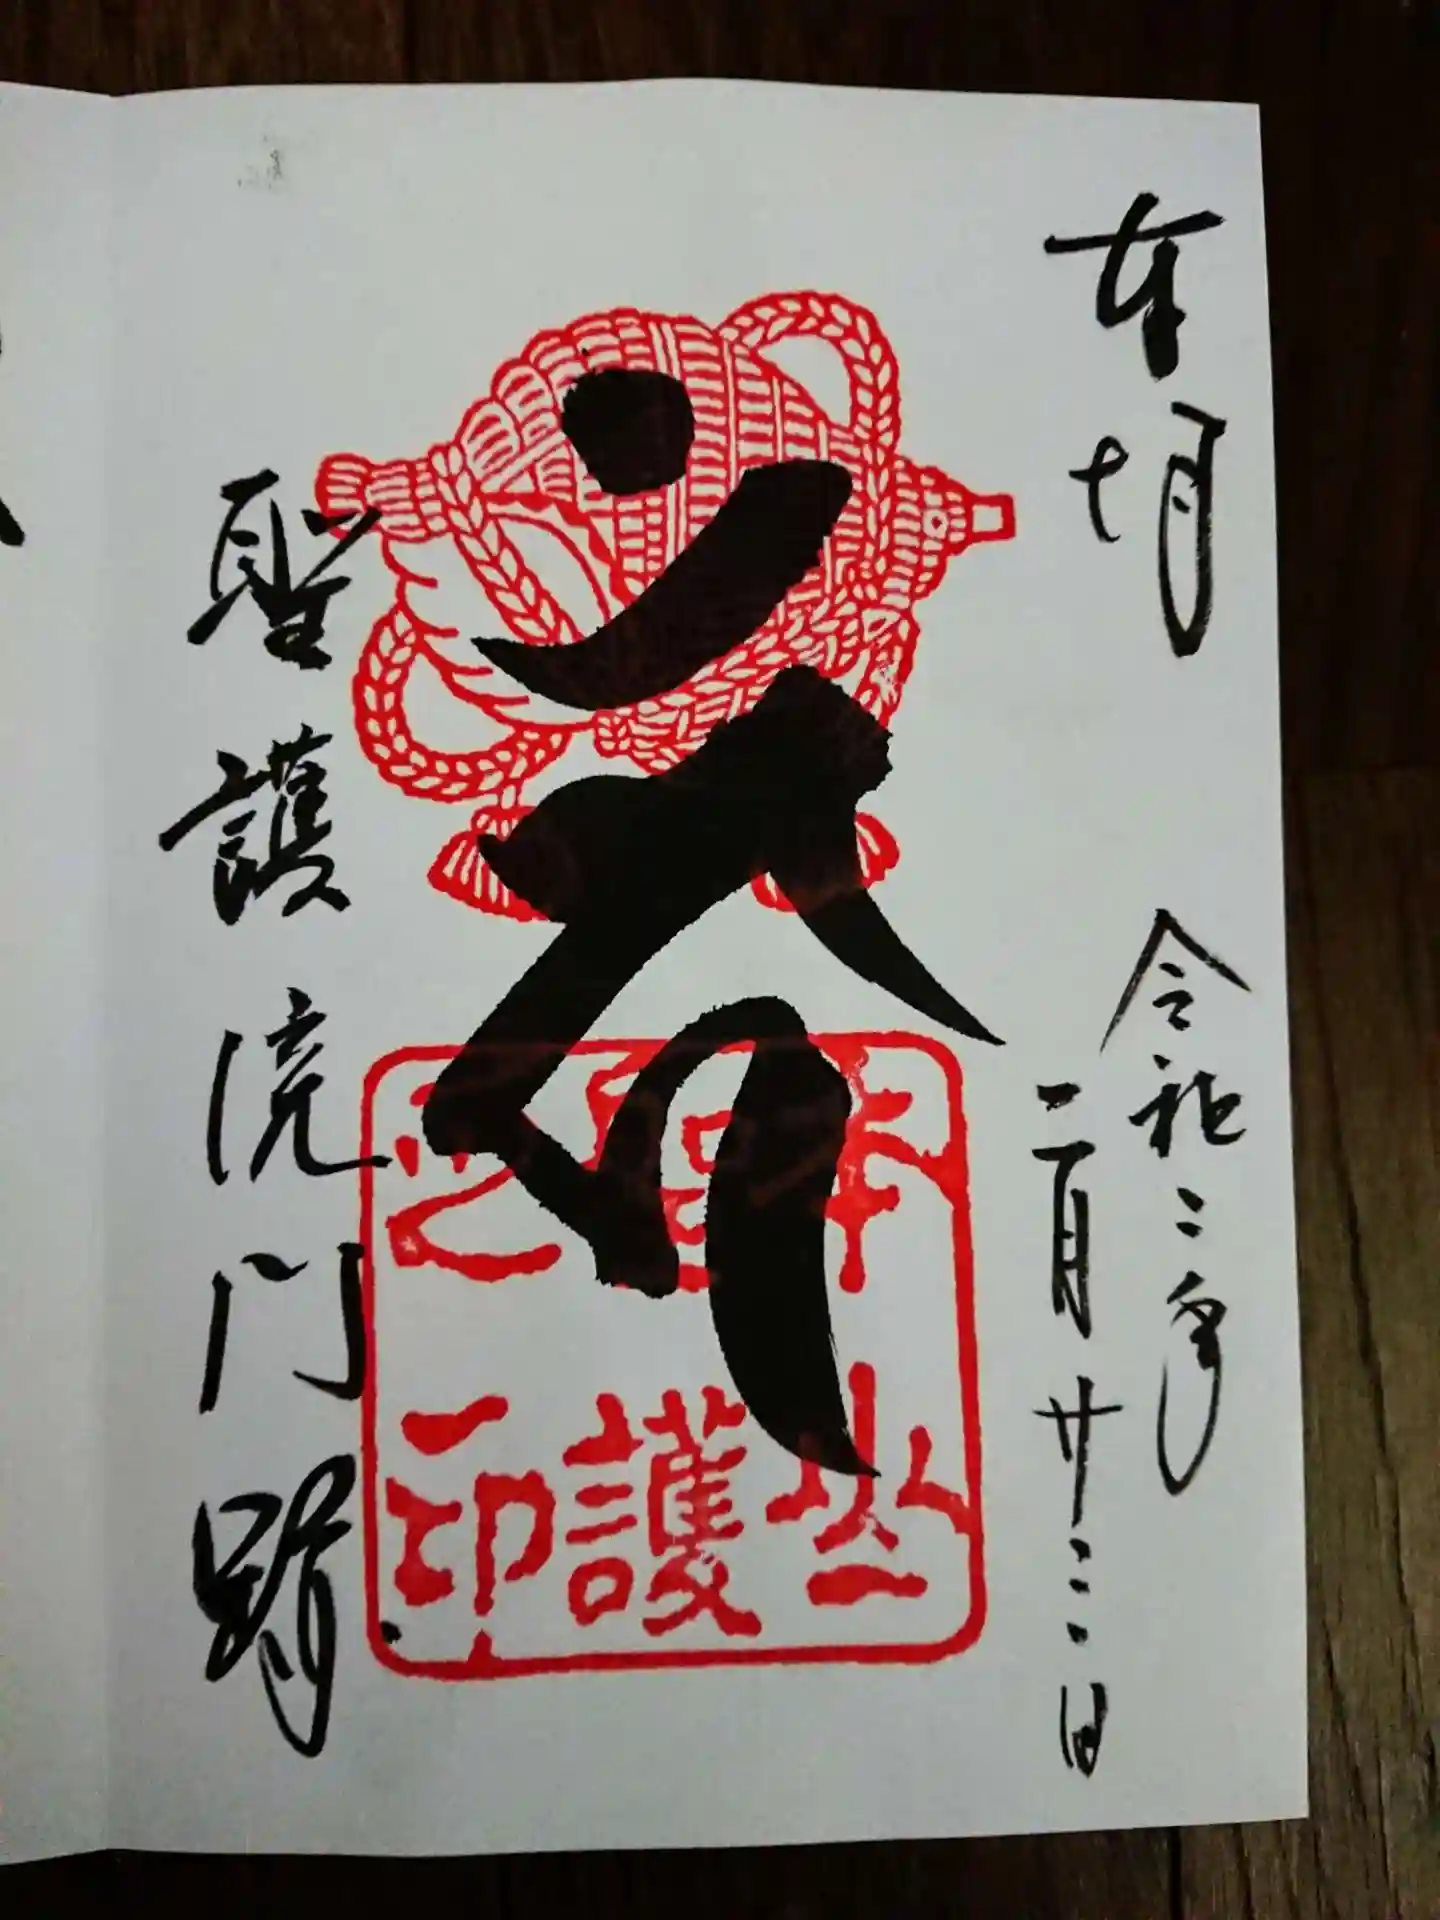 奉拝
令和二年
二月廿三日
聖護院門跡
聖護
之印